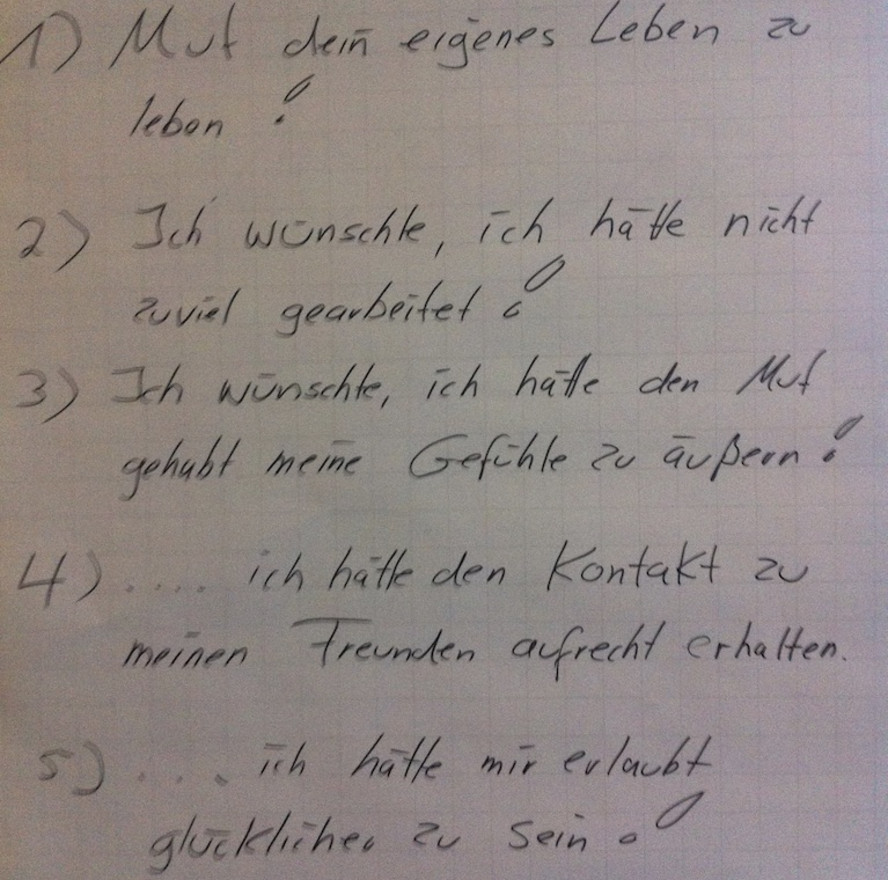 1) Mut dein eigenes Leben zu
leben !
2) Ich wünschte, ich hätte nicht
zuviel gearbeitet !
3) Ich wünschte, ich hätte den Mut
gehabt meine Gefühle zu äußern !
4) .... ich hätte den Kontakt zu
meinen Freunden aufrecht erhalten.
5) .... ich hätte mir erlaubt
glücklicher zu sein !